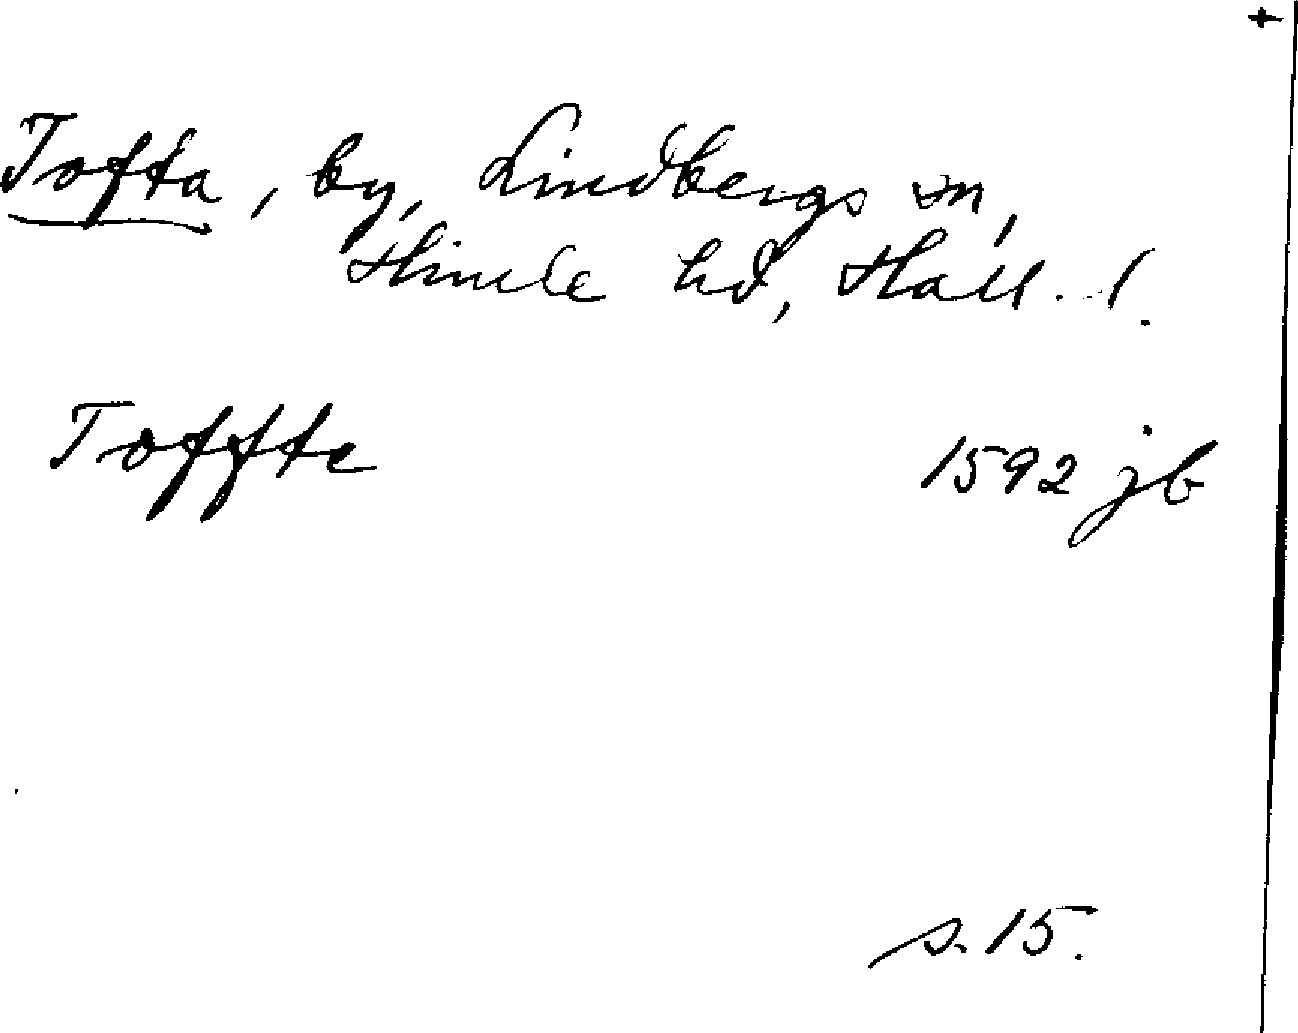 +
Tofta, by, Lindbergs sn,
Himle hd, Hall. l.
Toffte 1592 jb
s. 15.